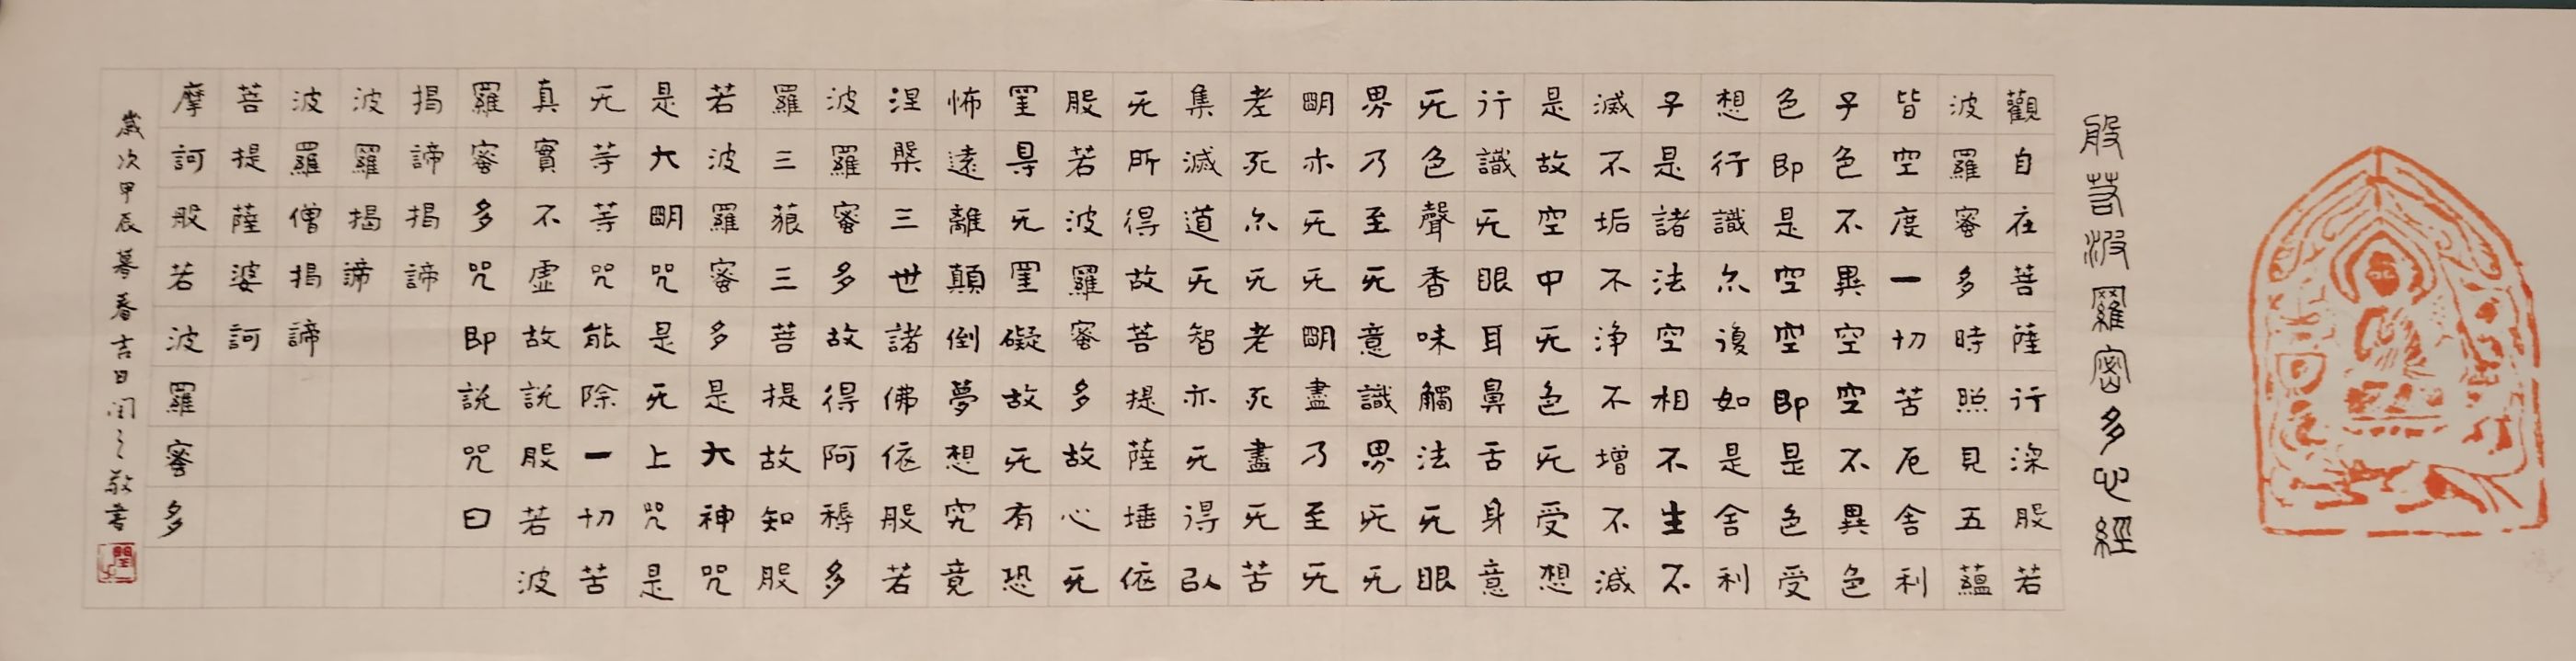 般若波羅密多心經
觀自在菩薩行深般若
波羅蜜多時照見五蘊
皆空度一切苦厄舍利
子色不異空空不異色
色即是空空即是色受
想行識尒復如是舍利
子是諸法空相不生不
滅不垢不淨不增不減
是故空中无色无受想
行識无眼耳鼻舌身意
无色聲香味觸法无眼
界乃至无意識界无无
朙亦无无朙盡乃至无
老死尒无老死盡无苦
集滅道无智亦无得以
无所得故菩提薩埵依
般若波羅蜜多故心无
罣㝵无罣礙故无有恐
怖遠離顛倒夢想究竟
涅槃三世諸佛依般若
波羅蜜多故得阿耨多
羅三藐三菩提故知般
若波羅蜜多是大神咒
是大朙咒是无上咒是
无等等咒能除一切苦
真實不虛故說般若波
羅蜜多咒即說咒曰
揭諦揭諦
波羅揭諦
波羅僧揭諦
菩提薩婆訶
摩訶般若波羅蜜多
歲次甲辰暮春吉日閏之敬書